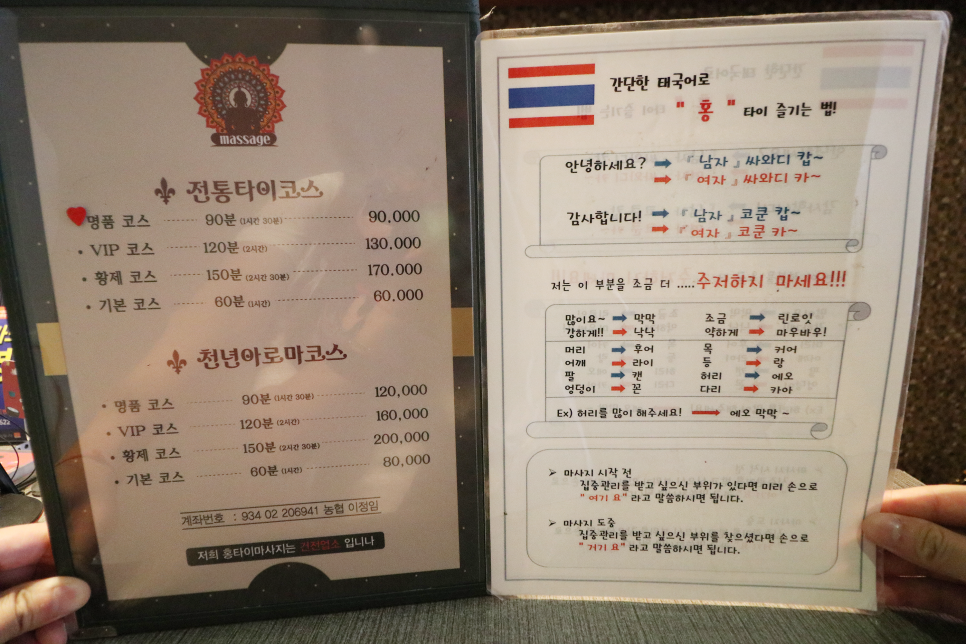 massage
전통타이코스
명품 코스 90분 (1시간 30분) 90,000
• VIP 코스 120분 (2시간) 130,000
• 황제 코스 150분 (2시간 30분) 170,000
• 기본 코스 60분 (1시간) 60,000
천년아로마코스
• 명품 코스 90분 (1시간 30분) 120,000
• VIP 코스 120분 (2시간) 160,000
• 황제 코스 150분 (2시간 30분) 200,000
• 기본 코스 60분 (1시간) 80,000
계좌번호 : 934 02 206941 농협 이정임
저희 홍타이마사지는 건전업소 입니다
간단한 태국어로
" 홍 " 타이 즐기는 벱!
안녕하세요? ➡ 『 남자 』 싸와디 캅~
➡ 『 여자 』 싸와디 카~
감사합니다! ➡ 『 남자 』 코쿤 캅~
➡ 『 여자 』 코쿤 카~
저는 이 부분을 조금 더 .....주저하지 마세요!!!
많이요~ ➡ 막막 조금 ➡ 린로잇
강하게!! ➡ 낙낙 약하게 ➡ 마우바우!
머리 ➡ 후어 목 ➡ 커어
어깨 ➡ 라이 등 ➡ 랑
팔 ➡ 캔 허리 ➡ 에오
엉덩이 ➡ 꼰 다리 ➡ 카아
Ex) 허리를 많이 해주세요! ➡ 에오 막막 ~
➢ 마사지 시작 전
집중관리를 받고 싶으신 부위가 있다면 미리 손으로
" 여기 요" 라고 말씀하시면 됩니다.
➢ 마사지 도중
집중관리를 받고 싶으신 부위를 찾으셨다면 손으로
" 거기 요" 라고 말씀하시면 됩니다.